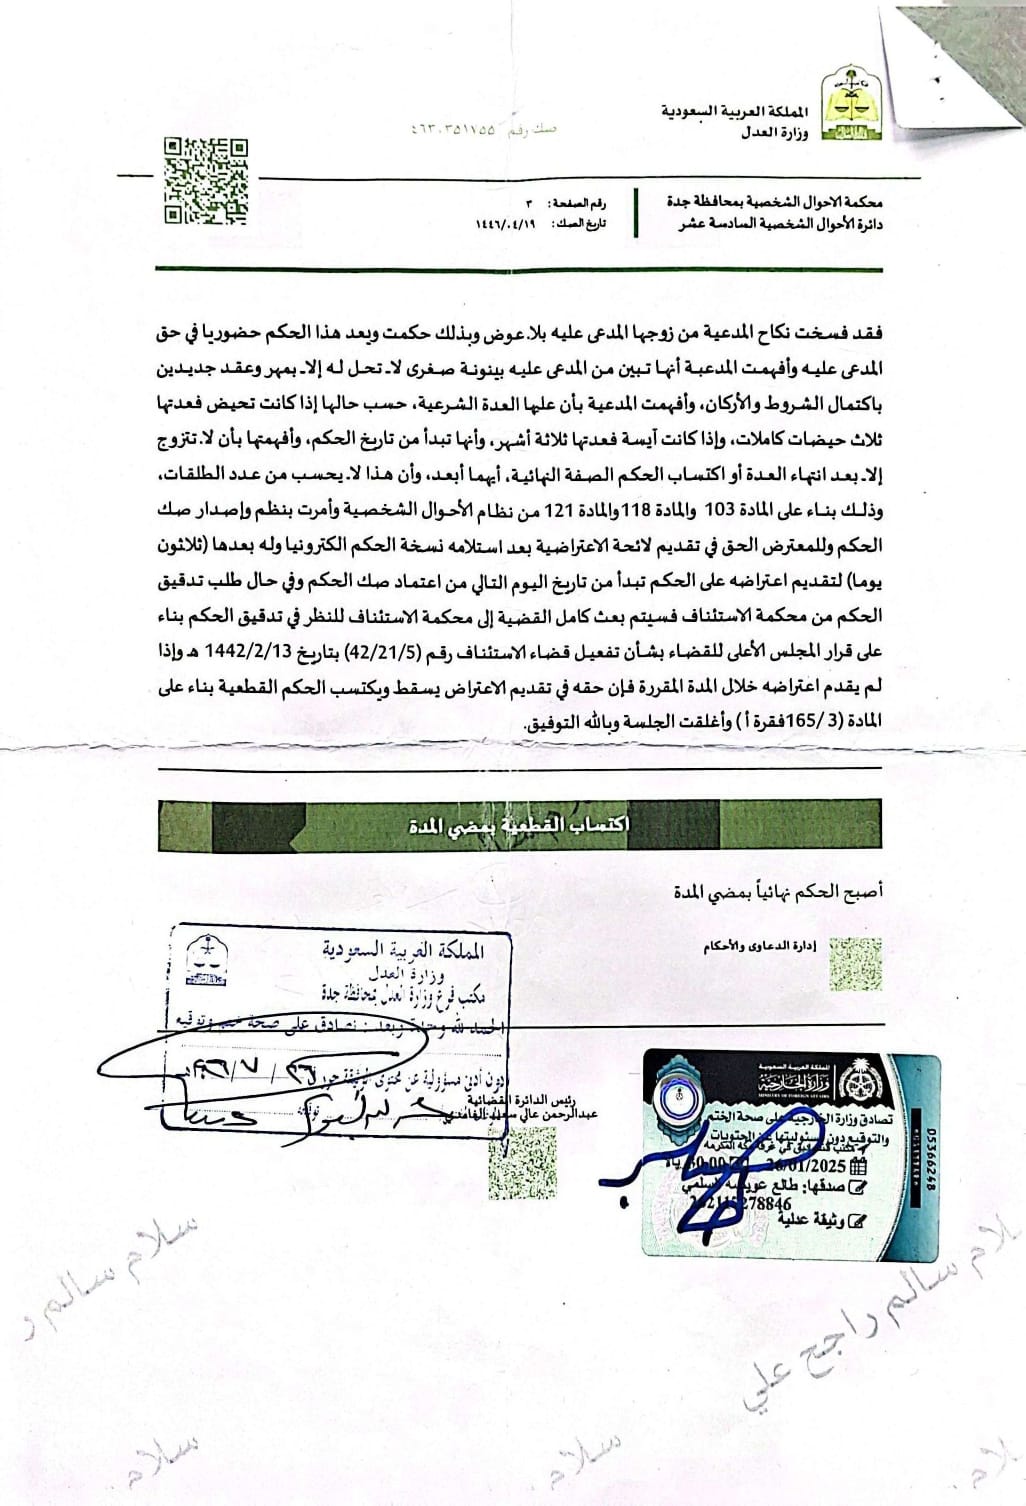 المملكة العربية السعودية
وزارة العدل
صك رقم ٤٦٣٠٣٥١٧٥٥
محكمة الاحوال الشخصية بمحافظة جدة
دائرة الأحوال الشخصية السادسة عشر
رقم الصفحة: ٣
تاريخ الصك: ١٤٤٦/٠٤/١٩
فقد فسخت نكاح المدعية من زوجها المدعى عليه بلا عوض وبذلك حكمت ويعد هذا الحكم حضوريا في حق
المدعى عليه وأفهمت المدعية أنها تبين من المدعى عليه بينونة صغرى لا تحل له إلا بمهر وعقد جديدين
باكتمال الشروط والأركان، وأفهمت المدعية بأن عليها العدة الشرعية، حسب حالها إذا كانت تحيض فعدتها
ثلاث حيضات كاملات، وإذا كانت آيسة فعدتها ثلاثة أشهر، وأنها تبدأ من تاريخ الحكم، وأفهمتها بأن لا تتزوج
إلا بعد انتهاء العدة أو اكتساب الحكم الصفة النهائية، أيهما أبعد، وأن هذا لا يحسب من عدد الطلقات،
وذلك بناء على المادة 103 والمادة 118والمادة 121 من نظام الأحوال الشخصية وأمرت بنظم وإصدار صك
الحكم وللمعترض الحق في تقديم لائحة الاعتراضية بعد استلامه نسخة الحكم الكترونيا وله بعدها (ثلاثون
يوما) لتقديم اعتراضه على الحكم تبدأ من تاريخ اليوم التالي من اعتماد صك الحكم وفي حال طلب تدقيق
الحكم من محكمة الاستئناف فسيتم بعث كامل القضية إلى محكمة الاستئناف للنظر في تدقيق الحكم بناء
على قرار المجلس الأعلى للقضاء بشأن تفعيل قضاء الاستئناف رقم (42/21/5) بتاريخ 1442/2/13 هـ وإذا
لم يقدم اعتراضه خلال المدة المقررة فإن حقه في تقديم الاعتراض يسقط ويكتسب الحكم القطعية بناء على
المادة (3 /165فقرة أ) وأغلقت الجلسة وبالله التوفيق.
اكتساب القطعية بمضي المدة
أصبح الحكم نهائياً بمضي المدة
إدارة الدعاوى والأحكام
المملكة العربية السعودية
وزارة العدل
مكتب فرع وزارة العدل بمحافظة جدة
الحمد لله وحده وبعد : نصادق على صحة ختم وتوقيع
دون أدنى مسؤولية عن محتوى الوثيقة
رئيس الدائرة القضائية
عبدالرحمن عالي سعيد الغامدي
المملكة العربية السعودية
وزارة الخارجية
MINISTRY OF FOREIGN AFFAIRS
تصادق وزارة الخارجية على صحة الختم
والتوقيع دون مسئوليتها عن المحتويات
26/01/2025
30:00 ريال
صدقها: طالع عويضه السلمي
وثيقة عدلية
D5366248
سلام سالم ر
سلام سالم راجح علي
سلام
سلام
سلام